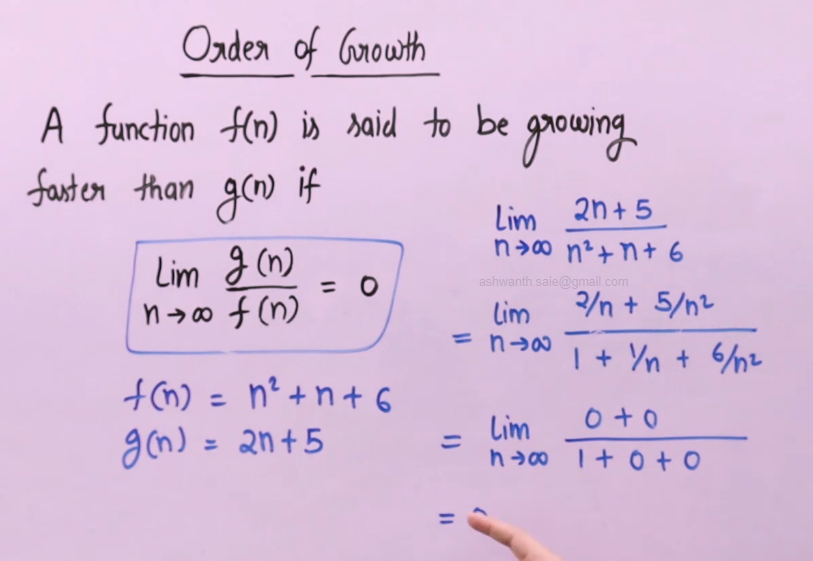 Order of Growth
A function f(n) is said to be growing
faster than g(n) if
Lim n→∞ g(n)/f(n) = 0
f(n) = n² + n + 6
g(n) = 2n + 5
Lim n→∞ 2n + 5 / n² + n + 6
ashwanth.saie@gmail.com
= Lim n→∞ 2/n + 5/n² / 1 + 1/n + 6/n²
= Lim n→∞ 0 + 0 / 1 + 0 + 0
=